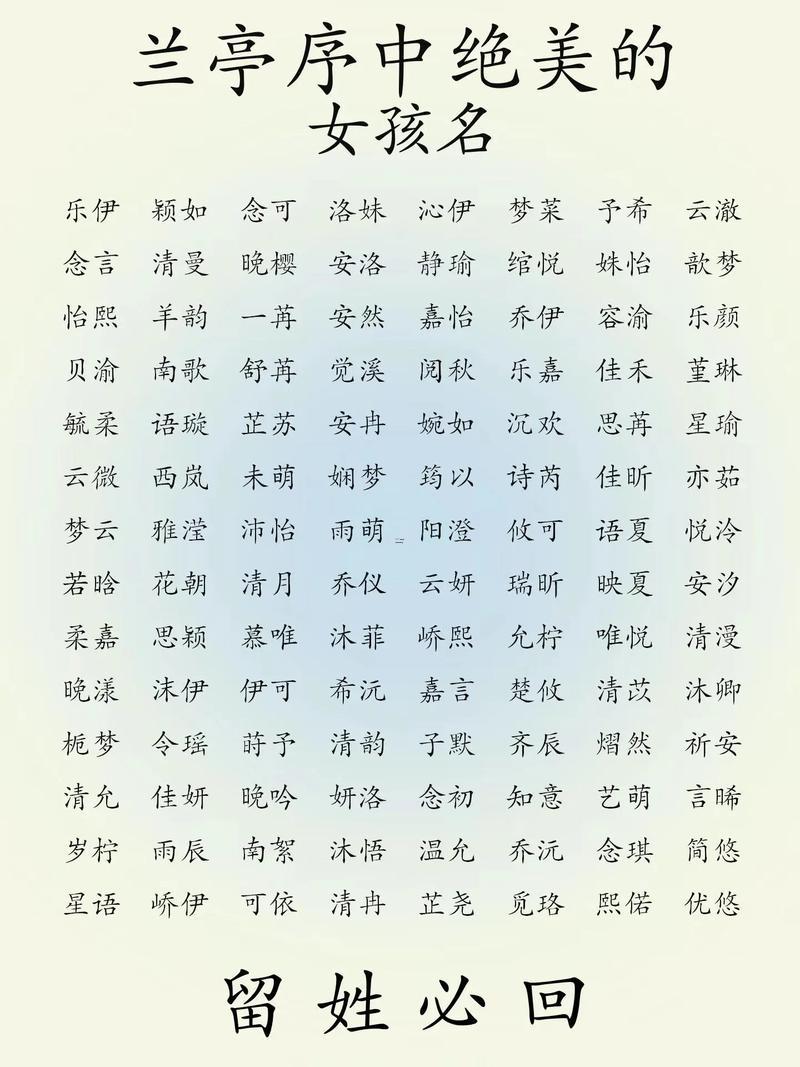 兰亭序中绝美的
女孩名
乐伊 颖如 念可 洛妹 沁伊 梦菜 予希 云澈
念言 清曼 晚樱 安洛 静瑜 绾悦 姝怡 歆梦
怡熙 羊韵 一苒 安然 嘉怡 乔伊 容渝 乐颜
贝渝 南歌 舒苒 觉溪 阅秋 乐嘉 佳禾 堇琳
毓柔 语璇 芷苏 安冉 婉如 沉欢 思苒 星瑜
云微 西岚 未萌 娴梦 筠以 诗芮 佳昕 亦茹
梦云 雅滢 沛怡 雨萌 阳澄 攸可 语夏 悦泠
若晗 花朝 清月 乔仪 云妍 瑞昕 映夏 安汐
柔嘉 思颖 慕唯 沐菲 峤熙 允柠 唯悦 清漫
晚漾 沫伊 伊可 希沅 嘉言 楚攸 清苡 沐卿
栀梦 令瑶 莳予 清韵 子默 齐辰 熠然 祈安
清允 佳妍 晚吟 妍洛 念初 知意 艺萌 言晞
岁柠 雨辰 南絮 沐悟 温允 乔沅 念琪 简悠
星语 峤伊 可依 清冉 芷尧 觅珞 熙偌 优悠
留姓必回